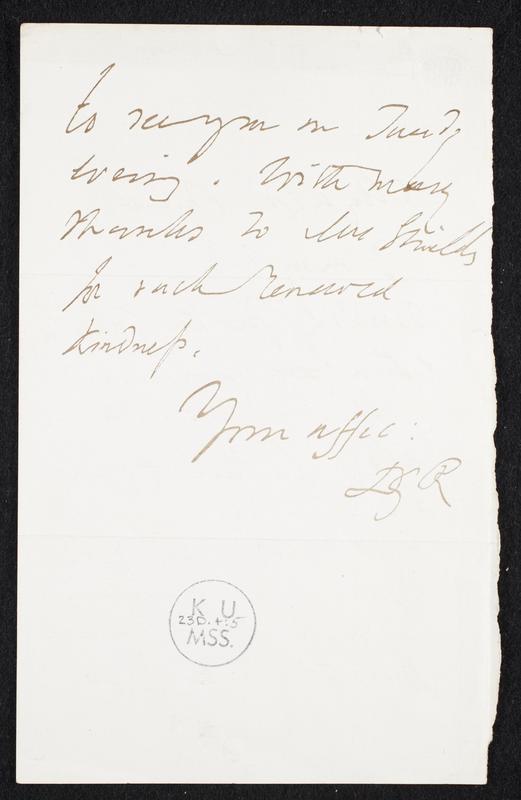 to see you on Tuesdy
evening. With many
thanks to Mrs Shields
for such renewed
kindness.
Your affec:
DGR
K U
23D.4:5
MSS.